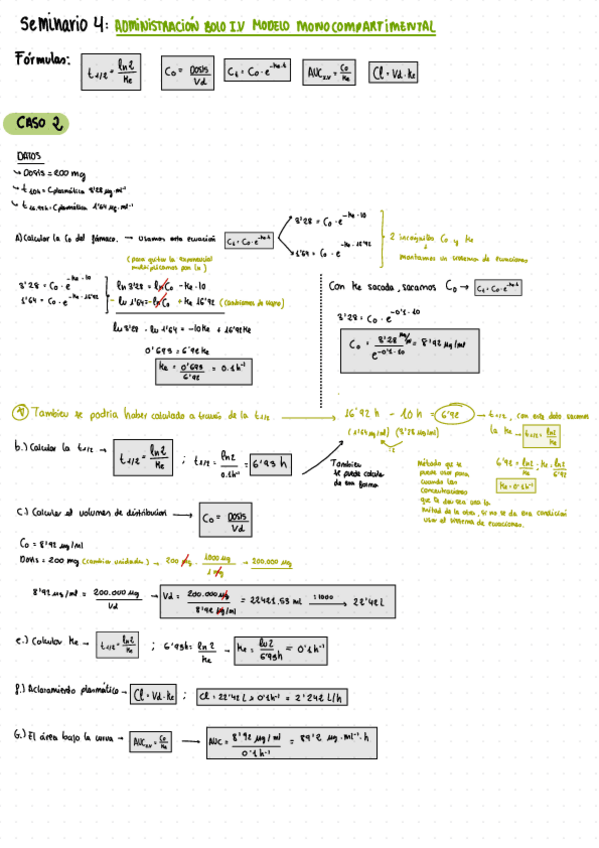 Seminario 4: ADMINISTRACIÓN BOLO I.V MODELO MONOCOMPARTIMENTAL
Fórmulas: t1/2 = ln2/Ke C0 = DOSIS/Vd Ct = C0 · e^-Ke·t AUC I.V = C0/Ke Cl = Vd · Ke
CASO 2
DATOS
↳ Dosis = 200 mg
↳ t 10h = Cplasmática 3'28 µg·ml⁻¹
↳ t 16.92h = Cplasmática 1'64 µg·ml⁻¹
A) Calcular la C0 del fármaco. → Usamos esta ecuación Ct = C0 · e^-Ke·t
3'28 = C0 · e^-Ke·10
1'64 = C0 · e^-Ke·16'92
2 incógnitas C0 y Ke
montamos un sistema de ecuaciones
(para quitar la exponencial
multiplicamos por ln)
3'28 = C0 · e^-Ke·10
1'64 = C0 · e^-Ke·16'92
ln 3'28 = ln C0 - Ke · 10
- ln 1'64 = - ln C0 + Ke 16'92 (cambiamos de signo)
ln 3'28 - ln 1'64 = -10Ke + 16'92 Ke
0'693 = 6'92 Ke
Ke = 0'693/6'92 = 0.1 h⁻¹
Con Ke sacada, sacamos C0 → Ct = C0 · e^-Ke·t
3'28 = C0 · e^-0'1·10
C0 = 3'28 µg/ml / e^-0'1·10 = 8'92 µg/ml
También se podría haber calculado a través de la t1/2 → 16'92 h - 10 h = 6'92 → t1/2, con este dato sacamos
(1'64 µg/ml) (3'28 µg/ml)
la Ke → t1/2 = ln2/Ke
6'92 = ln2/Ke ; Ke = ln2/6'92
Ke = 0'1 h⁻¹
b.) Calcular la t1/2 → t1/2 = ln2/Ke ; t1/2 = ln2/0.1h⁻¹ = 6'93 h
También
se puede calcular
de esa forma
Método que se
puede usar para
cuando las
concentraciones
que te dan sea una la
mitad de la otra, si no se da esa condición
usar el sistema de ecuaciones.
C.) Calcular el volumen de distribución → C0 = DOSIS/Vd
C0 = 8'92 µg/ml
Dosis = 200 mg (cambiar unidades) → 200 mg · 1000 µg/1 mg → 200.000 µg
8'92 µg/ml = 200.000 µg/Vd → Vd = 200.000 µg/8'92 µg/ml = 22421.53 ml :1000 → 22'42 L
e.) Calcular Ke → t1/2 = ln2/Ke ; 6'93h = ln2/Ke → Ke = ln2/6'93h = 0'1h⁻¹
f.) Aclaramiento plasmático → Cl = Vd · Ke ; Cl = 22'42 L × 0'1h⁻¹ = 2'242 L/h
G.) El área bajo la curva → AUC I.V = C0/Ke → AUC = 8'92 µg/ml / 0'1 h⁻¹ = 89'2 µg·ml⁻¹·h